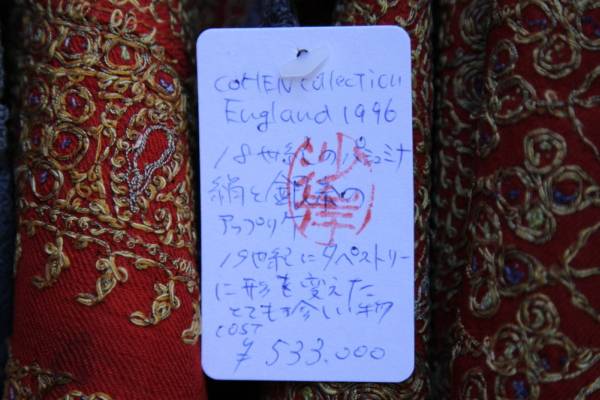 COHEN Collection
England 1996
18世紀のパシュミナ
絹と銀糸の
アップリケ
19世紀にタペストリー
に形を変えた
とても珍しい物
COST
¥ 533.000